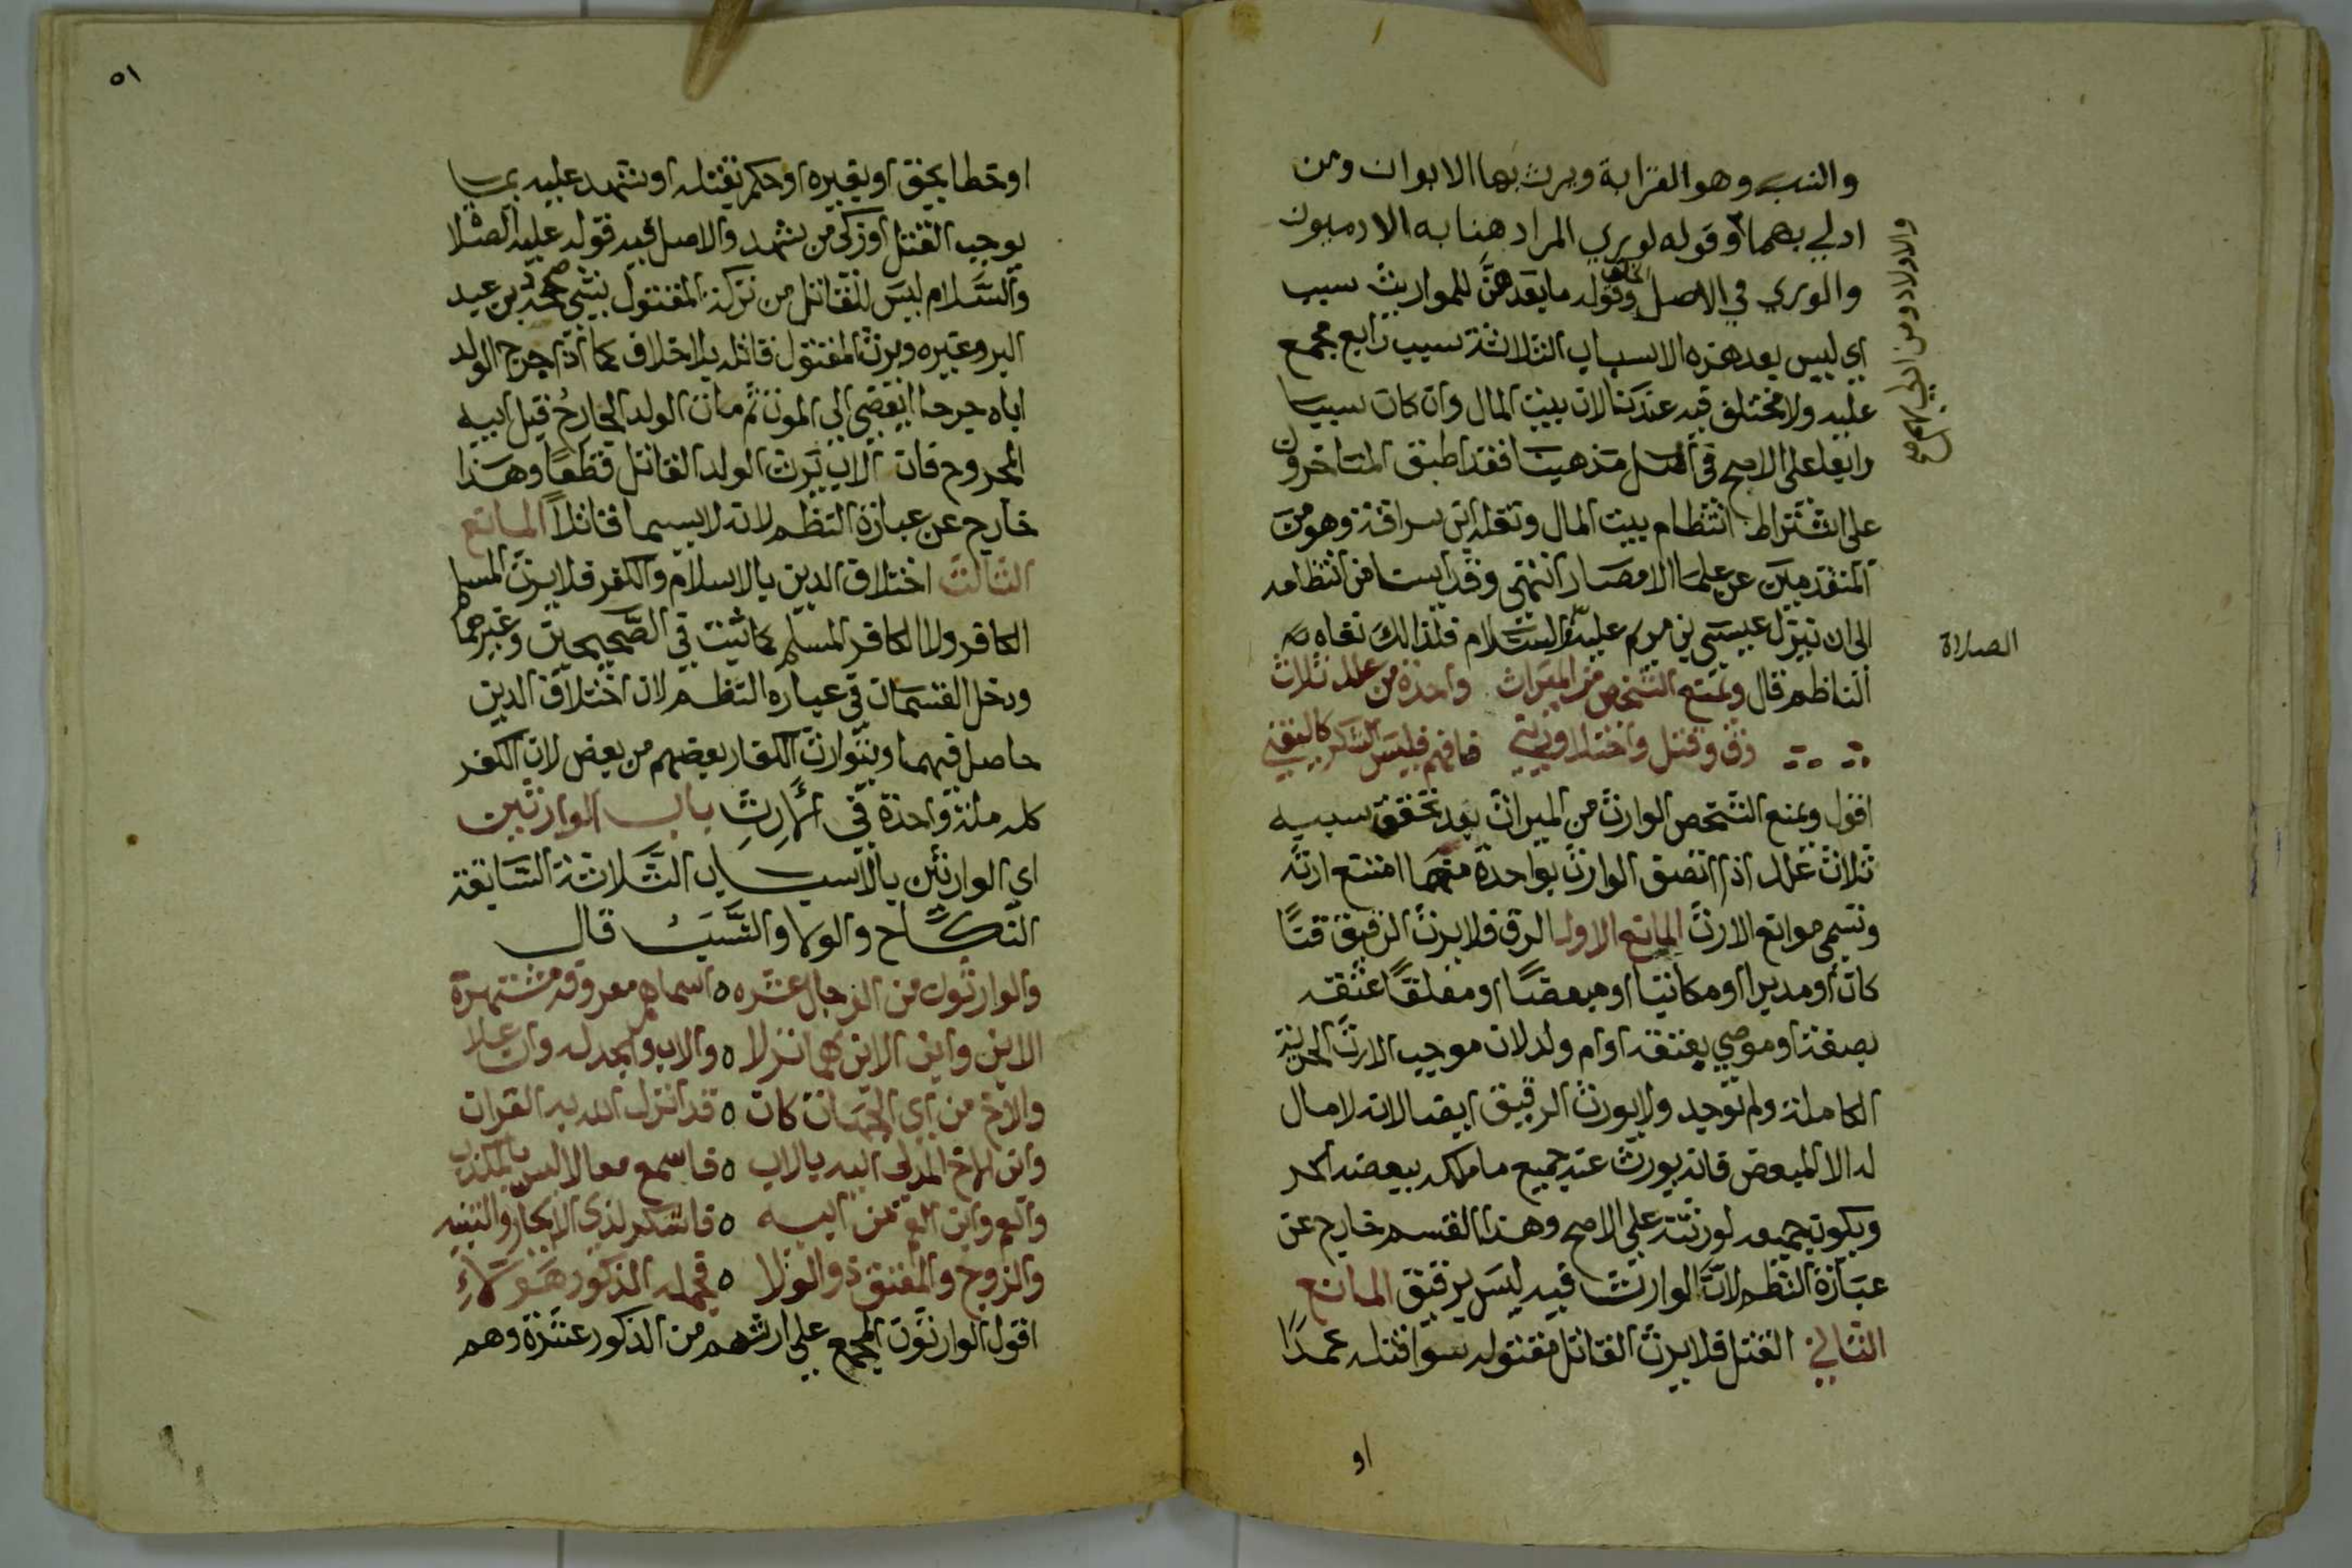 والنسب وهو القرابة ويرث بها الابوان ومن
ادلي بهما وقوله لوري المراد هنا به الادميون
والوري في الاصل الخلق وقوله ما بعدهن للمواريث سبب
اي ليس بعد هذه الاسباب الثلاثة سبب رابع مجمع
عليه ولا مختلف فيه عندنا لان بيت المال وان كان سببا
رابعا علي الاصح في اصل مذهبنا فقد اطبق المتاخرون
علي اشتراط انتظام بيت المال ونقله ابن سراقة وهو من
المتقدمين عن علما الامصار انتهي وقد ايسنا من انتظامه
الي ان ينزل عيسي بن مريم عليه السلام فلذالك نفاه
الناظم قال ويمنع الشخص من الميراث واحدة من علل ثلاث
رق وقتل واختلاف دين فافهم فليس الشك كاليقين
اقول ويمنع الشخص الوارث من الميراث بعد تحقق سببه
ثلاث علل اذا اتصف الوارث بواحدة منها امتنع ارثه
وتسمي موانع الارث المانع الاول الرق فلا يرث الرقيق قنا
كان او مدبرا او مكاتبا او مبعضا او معلقا عتقه
بصفة او موصي بعتقه او ام ولد لان موجب الارث الحرية
الكاملة ولم توجد ولا يورث الرقيق ايضا لانه لا مال
له الا المبعض فانه يورث عنه جميع ما ملكه ببعضه الحر
ويكون جميعه لورثته علي الاصح وهذا القسم خارج عن
عبارة النظم لان الوارث فيه ليس برقيق المانع
الثاني القتل فلا يرث القاتل مقتوله سوا قتله عمدا
او
والاولاد ومن ادلي بهم
صح
الصلاة
٥١
او خطا بحق او بغيره او حكم بقتله او شهد عليه بما
يوجب القتل او زكي من يشهد والاصل فيه قوله عليه الصلا
والسلام ليس للقاتل من تركة المقتول شي صححه بن عبد
البر وغيره ويرث المقتول قاتله بلا خلاف كما اذا جرح الولد
اباه جرحا انفضي الي الموت ثم مات الولد الجارح قبل ابيه
المجروح فان الاب يرث الولد القاتل قطعا وهذا
خارج عن عبارة النظم لانه لا يسما قاتلا المانع
الثالث اختلاف الدين بالاسلام والكفر فلا يرث المسلم
الكافر ولا الكافر المسلم كما ثبت في الصحيحين وغيرهما
ودخل القسمان في عبارة النظم لان اختلاف الدين
حاصل فيهما ويتوارث الكفار بعضهم من بعض لان الكفر
كله ملة واحدة في الارث باب الوارثين
اي الوارثين بالاسباب الثلاثة السابقة
النكاح والولا والنسب قال
والوارثون من الرجال عشره ٥ اسماهم معروفة مشتهرة
الابن وابن الابن مهما نزلا ٥ والاب والجد له وان علا
والاخ من اي الجهات كان ٥ قد انزل الله به القران
وابن الاخ المدلي اليه بالاب ٥ فاسمع مقالا ليس بالمكذب
والعم وابن العم من ابيه ٥ فاشكر لذي الايجاز والتنبيه
والزوج والمعتق ذو الولا ٥ فجملة الذكور هولاء
اقول الوارثون المجمع علي ارثهم من الذكور عشرة وهم